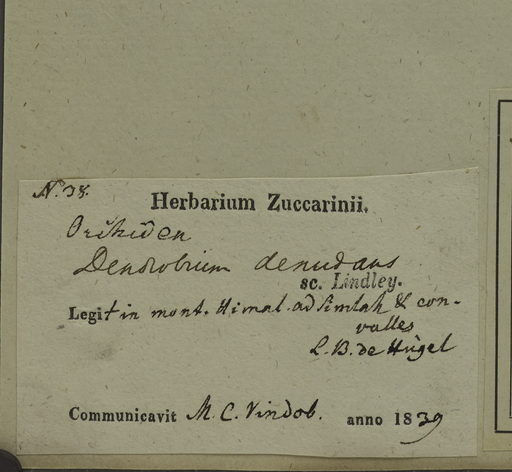 No. 38.
Herbarium Zuccarinii.
Orchiden
Dendrobium denudans
sc. Lindley.
Legit in mont. Himal. ad Simlah & con-
valles
L. B. de Hügel
Communicavit M. C. Vindob. anno 1839